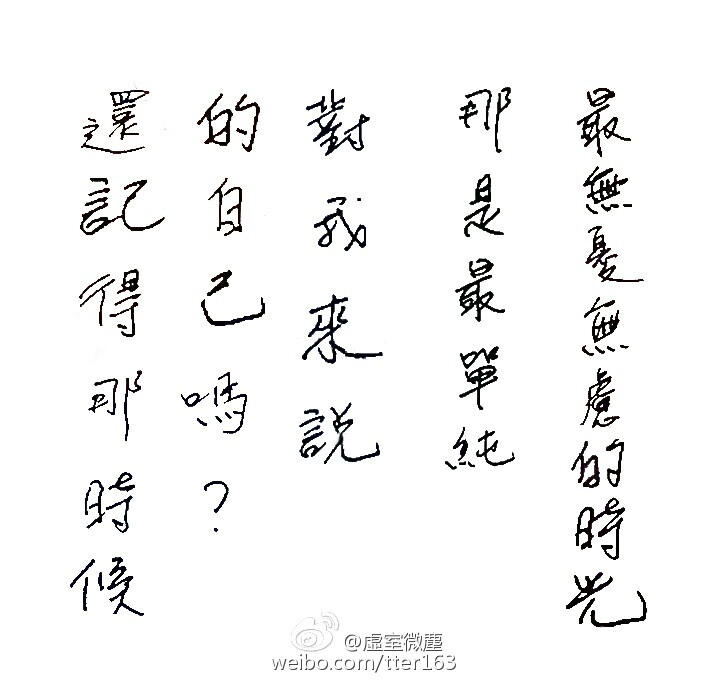 還記得那時候
的自己嗎？
對我來説
那是最單純
最無憂無慮的時光
@虛室微塵
weibo.com/tter163